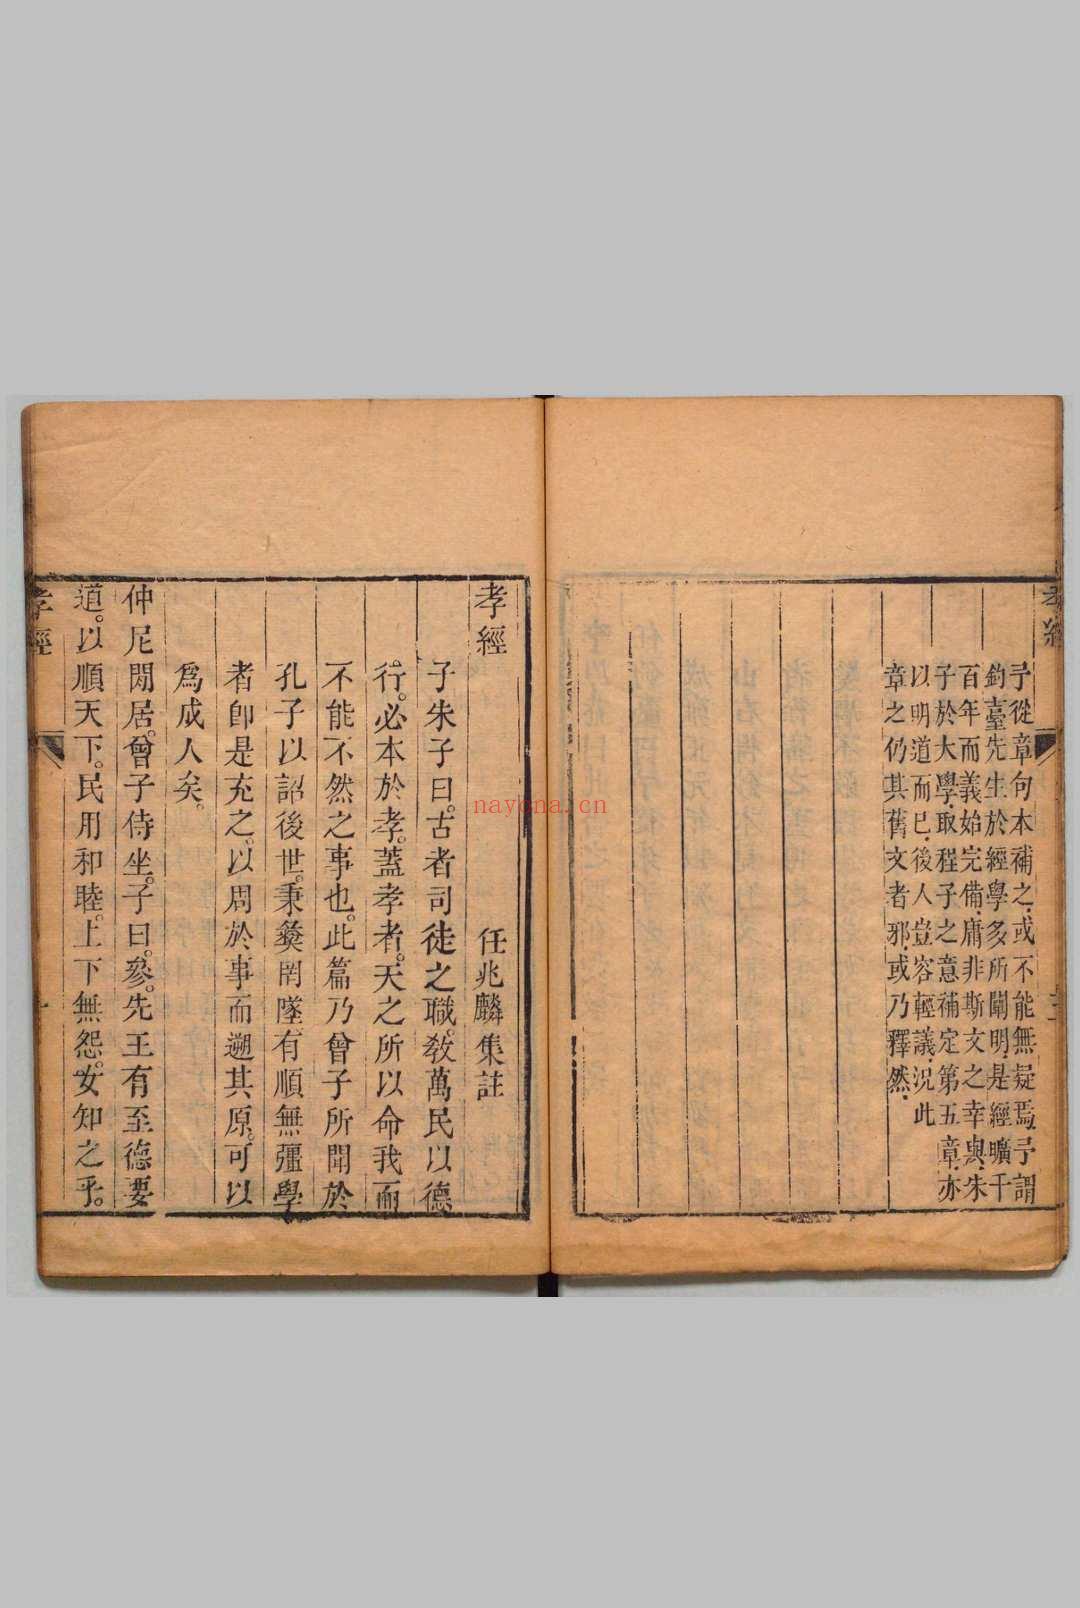 孝經
予從章句本補之.或不能無疑焉.予謂
釣臺先生於經學多所闡明.是經曠千
百年而義始完備.庸非斯文之幸與.朱
子於大學.取程子之意補定第五章.亦
以明道而已.後人豈容輕議.況此
章之仍其舊文者邪.或乃釋然.
孝經
任兆麟集註
子朱子曰。古者司徒之職。敎萬民以德
行。必本於孝。蓋孝者。天之所以命我而
不能不然之事也。此篇乃曾子所聞於
孔子以詔後世。秉彝罔墜。有順無彊。學
者卽是充之。以周於事而遡其原。可以
爲成人矣。
仲尼閒居。曾子侍坐。子曰。參。先王有至德要
道。以順天下。民用和睦。上下無怨。女知之乎。
孝經
nayona.cn